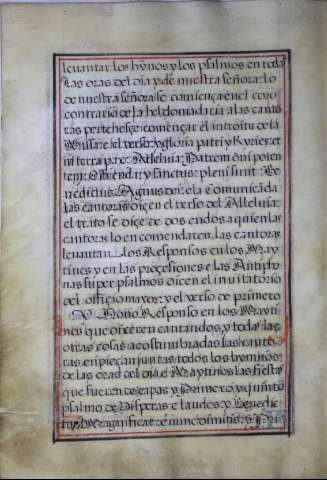 leuantar los hỹnos y los psalmos en todas
las oras del dia y de nuestra señora: lo
de nuestra señora se comiença en el coro
contrario de la hebdomadaria a las canto
ras pertenesçe començar el introitu de la
Missa: e el verso: y gloria patri y Kyries: et
in terra pax: Alleluia: Patrem oñi poten
tem: Ostende: y sanctus: pleni sunt: Be
nedictus: Agnus dei: e la Comunicada
las cantoras dicen el verso del Alleluia:
el trato se diçe de dos en dos a quien las
cantoras lo encomendaren: las cantoras
leuantan los Responsos en los May
tines y en las proçesiones e las Antipho
nas super psalmos diçen el inuitatorio
del offiçio mayor: y el verso de primero
y Nono Responso en los Mayti
nes que dixeren cantandos, y todas las
otras cosas acostumbradas las canto
ras enpieçan juntas todos los hymnos
de las oras del dia e Maytines las fiestas
que fueren de capas y Primero y quinto
psalmo de Visperas e laudes: y Benedic
tus Magnificat e nunc dimitis: y Pri